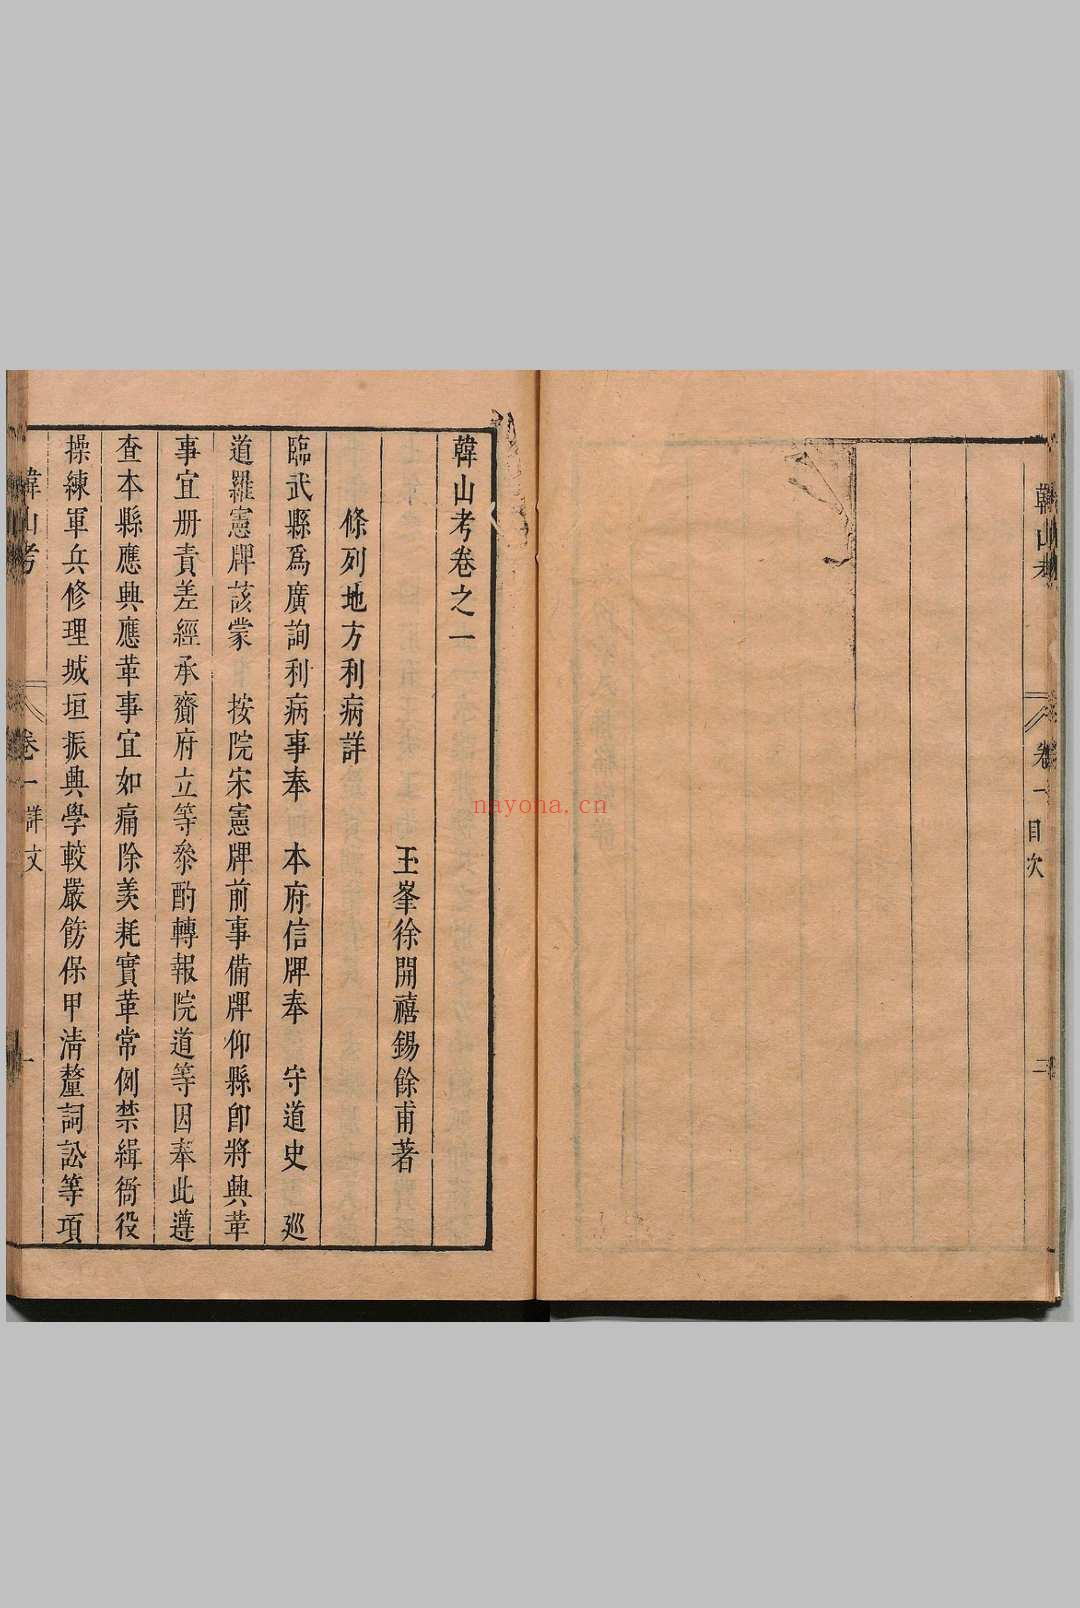 韓山考
卷一
目次
二
韓山考卷之一
玉峯徐開禧錫餘甫著
條列地方利病詳
臨武縣爲廣詢利病事奉 本府信牌奉 守道史 廵
道羅憲牌該蒙 按院宋憲牌前事備牌仰縣卽將興革
事宜册責差經承齎府立等叅酌轉報院道等因奉此遵
查本縣應興應革事宜如痛除羨耗實革常例禁緝衙役
操練軍兵修理城垣振興學較嚴飭保甲清釐詞訟等項
韓山考
卷一
詳文
一
nayona.cn